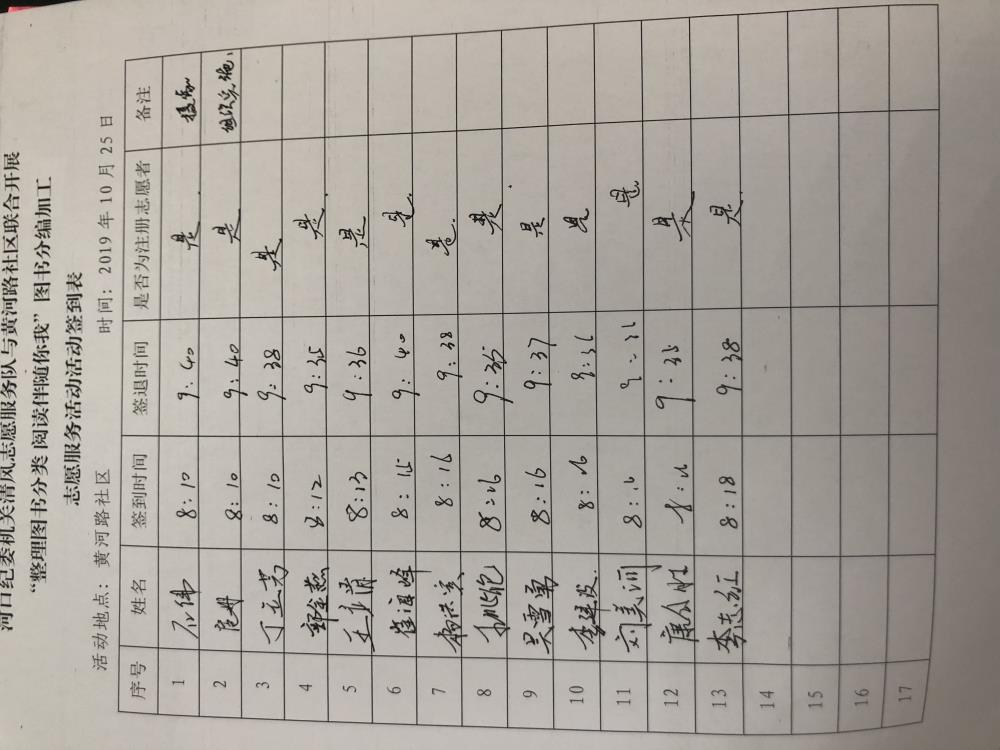 河口纪委机关清风志愿服务队与黄河路社区联合开展
“整理图书分类 阅读伴随你我”图书分编加工
志愿服务活动活动签到表
活动地点：黄河路社区 时间：2019年10月25日
序号 姓名 签到时间 签退时间 是否为注册志愿者 备注
1 8:10 9:40 是
2 8:10 9:40 是 组织实施
3 8:10 9:38 是
4 8:12 9:35 是
5 8:13 9:36 是
6 8:15 9:40 是
7 8:16 9:38 是
8 8:16 9:35 是
9 吴雪勇 8:16 9:37 是
10 李建发 8:16 9:36 是
11 刘美润 8:16 9:36 是
12 8:16 9:35 是
13 李志红 8:18 9:38 是
14
15
16
17